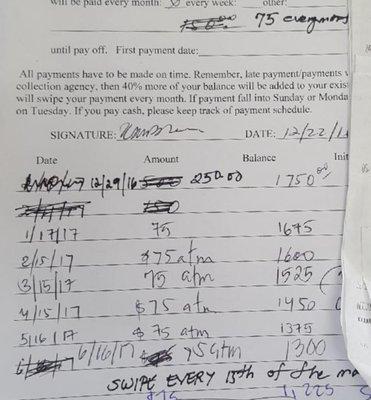 will be paid every month: every week: other:
75 every month
until pay off. First payment date:
All payments have to be made on time. Remember, late payment/payments
collection agency, then 40% more of your balance will be added to your exis
will swipe your payment every month. If payment fall into Sunday or Monda
on Tuesday. If you pay cash, please keep track of payment schedule.
SIGNATURE: DATE: 12/22/1
Date Amount Balance Init
12/29/16 250.00 1750.00
1/17/17 75 1675
2/15/17 $75 atm 1600
3/15/17 75 atm 1525
4/15/17 $75 atm 1450
5/16/17 $75 atm 1375
6/16/17 75 atm 1300
SWIPE EVERY 15th of the mo
1,225